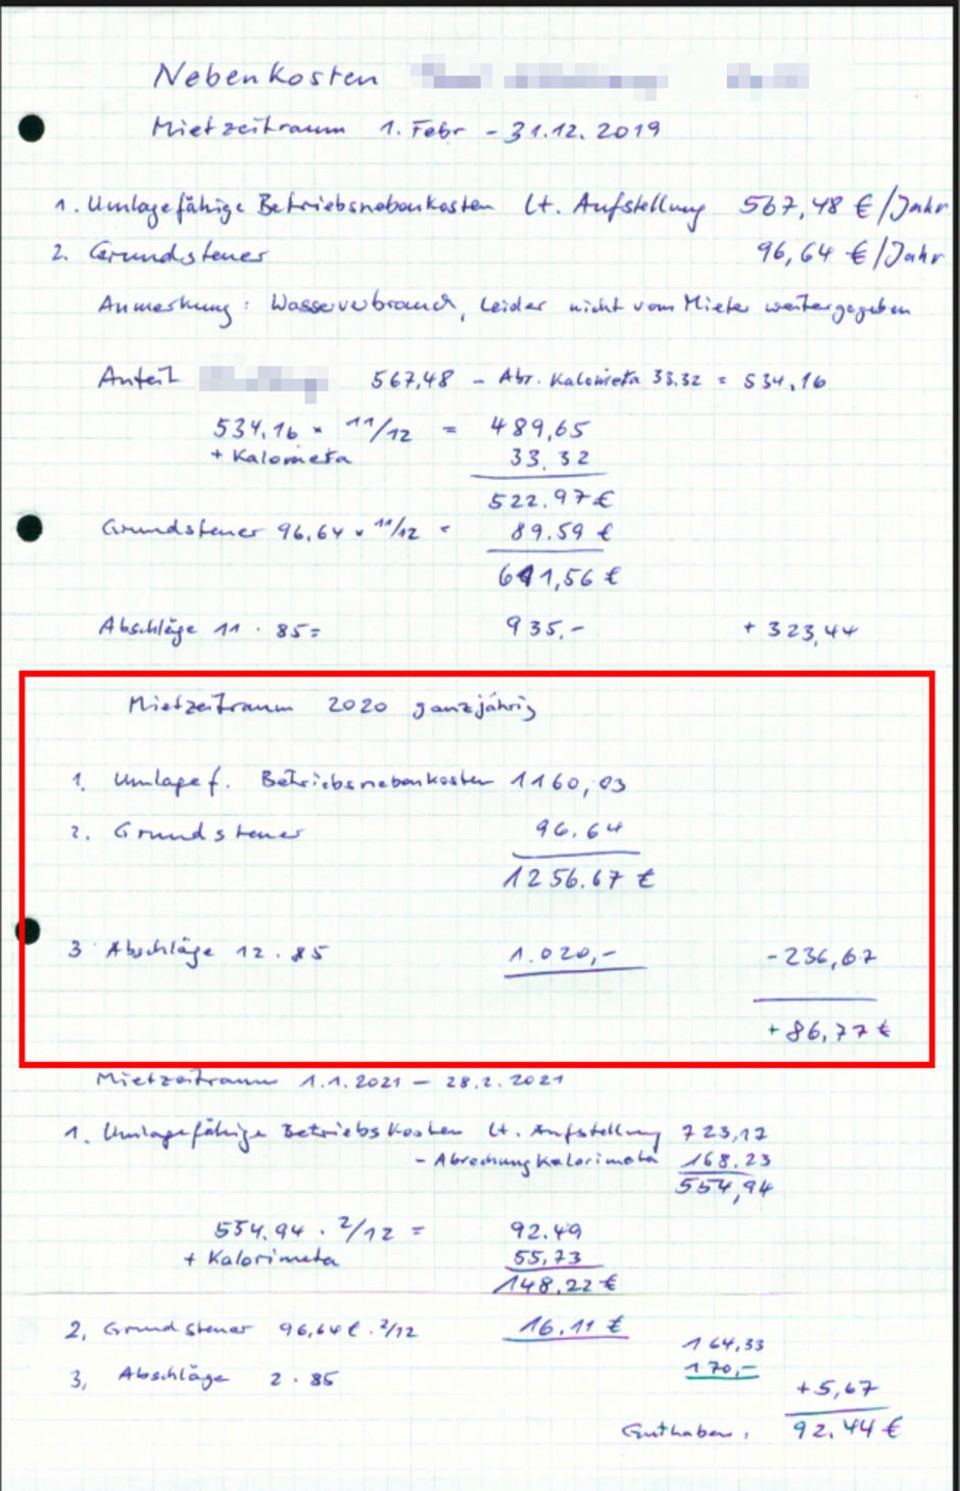 Nebenkosten
Mietzeitraum 1. Febr - 31.12.2019
1. Umlagefähige Betriebsnebenkosten lt. Aufstellung 567,48 €/Jahr
2. Grundsteuer 96,64 €/Jahr
Anmerkung: Wasserverbrauch, leider nicht vom Mieter weitergegeben
Anteil 567,48 - Abr. Kalometa 33.32 = 534,16
534,16 × 11/12 = 489,65
+ Kalometa 33.32
522.97 €
Grundsteuer 96,64 × 11/12 = 89.59 €
611,56 €
Abschläge 11 · 85 = 935,- + 323,44
Mietzeitraum 2020 ganzjährig
1. Umlagef. Betriebsnebenkosten 1160,03
2. Grundsteuer 96.64
1256.67 €
3 Abschläge 12 · 85 1.020,- - 236,67
+ 86,77 €
Mietzeitraum 1.1.2021 - 28.2.2021
1. Umlagefähige Betriebskosten lt. Aufstellung 723,17
- Abrechnung Kalorimeta 168.23
554,94
554.94 · 2/12 = 92.49
+ Kalorimeta 55,73
148,22 €
2, Grundsteuer 96,64 € · 2/12 16.11 €
164,33
3, Abschläge 2 · 85 170,-
+ 5,67
Guthaben: 92.44 €